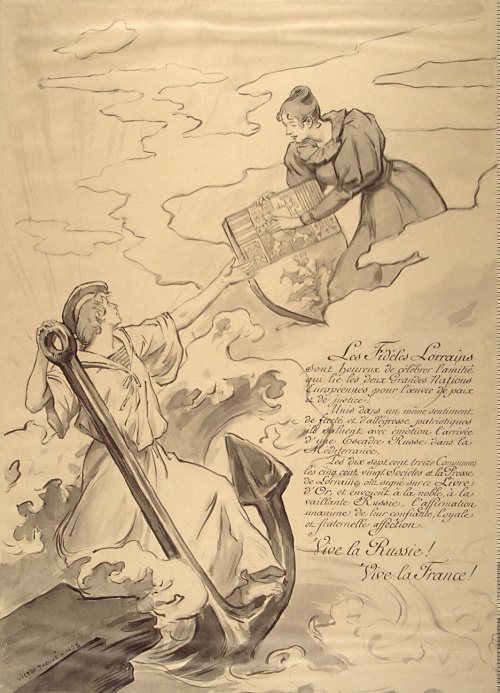 Les Fidèles Lorrains
sont heureux de célébrer l'amitié
qui lie les deux Grandes Nations
Européennes pour l'œuvre de paix
et de justice.
Unis dans un même sentiment
de fierté et d'allégresse patriotiques
ils saluent avec émotion l'arrivée
d'une Escadre Russe dans la
Méditerranée.
Les dix sept cent treize Communes
les cinq cent vingt Sociétés et la Presse
de Lorraine ont signé sur ce Livre
d'Or, et envoient à la noble, à la
vaillante Russie, l'affirmation
unanime de leur confiante, loyale
et fraternelle affection.
Vive la Russie !
Vive la France !
VICTOR PROUVÉ